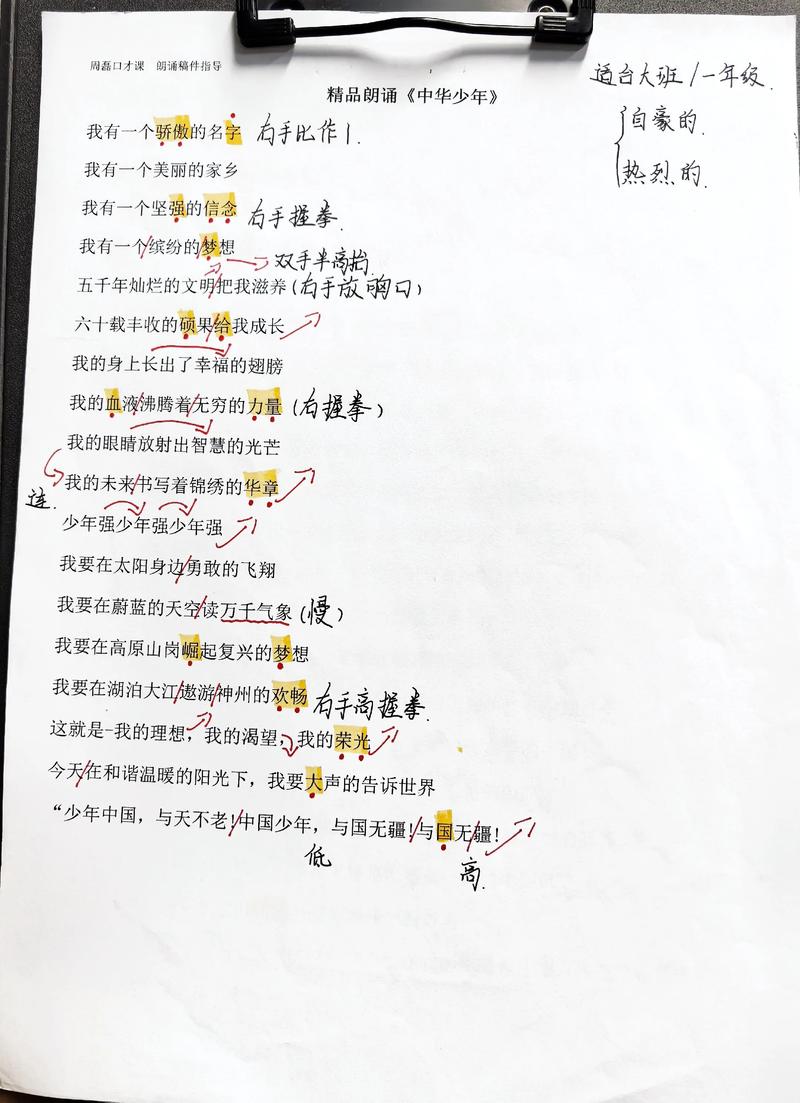 周磊口才课 朗诵稿件指导
适合大班/一年级.
精品朗诵《中华少年》
自豪的.
热烈的.
我有一个骄傲的名字 右手比作1.
我有一个美丽的家乡
我有一个坚强的信念 右手握拳.
我有一个缤纷的梦想 双手半高抬.
五千年灿烂的文明把我滋养(右手放胸口)
六十载丰收的硕果给我成长
我的身上长出了幸福的翅膀
我的血液沸腾着无穷的力量(右握拳)
我的眼睛放射出智慧的光芒
连.
我的未来书写着锦绣的华章
少年强少年强少年强
我要在太阳身边勇敢的飞翔
我要在蔚蓝的天空读万千气象(慢)
我要在高原山岗崛起复兴的梦想
我要在湖泊大江遨游神州的欢畅 右手高握拳.
这就是-我的理想,我的渴望,我的荣光
今天在和谐温暖的阳光下，我要大声的告诉世界
“少年中国，与天不老!中国少年，与国无疆!与国无疆!
低
高.